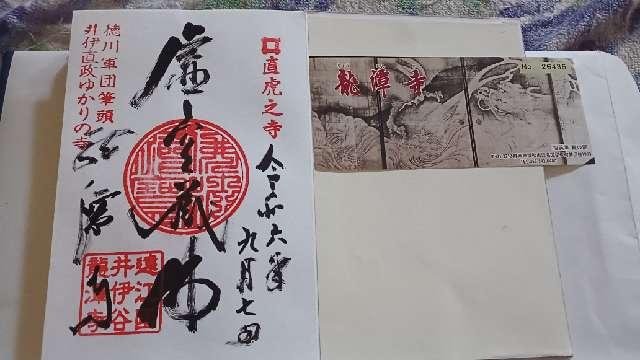 直虎之寺
令和六年九月七日
虚空蔵佛
龍潭寺
徳川軍団筆頭
井伊直政ゆかりの寺
遠江国
井伊谷
龍潭寺
龍潭寺
No. 26435